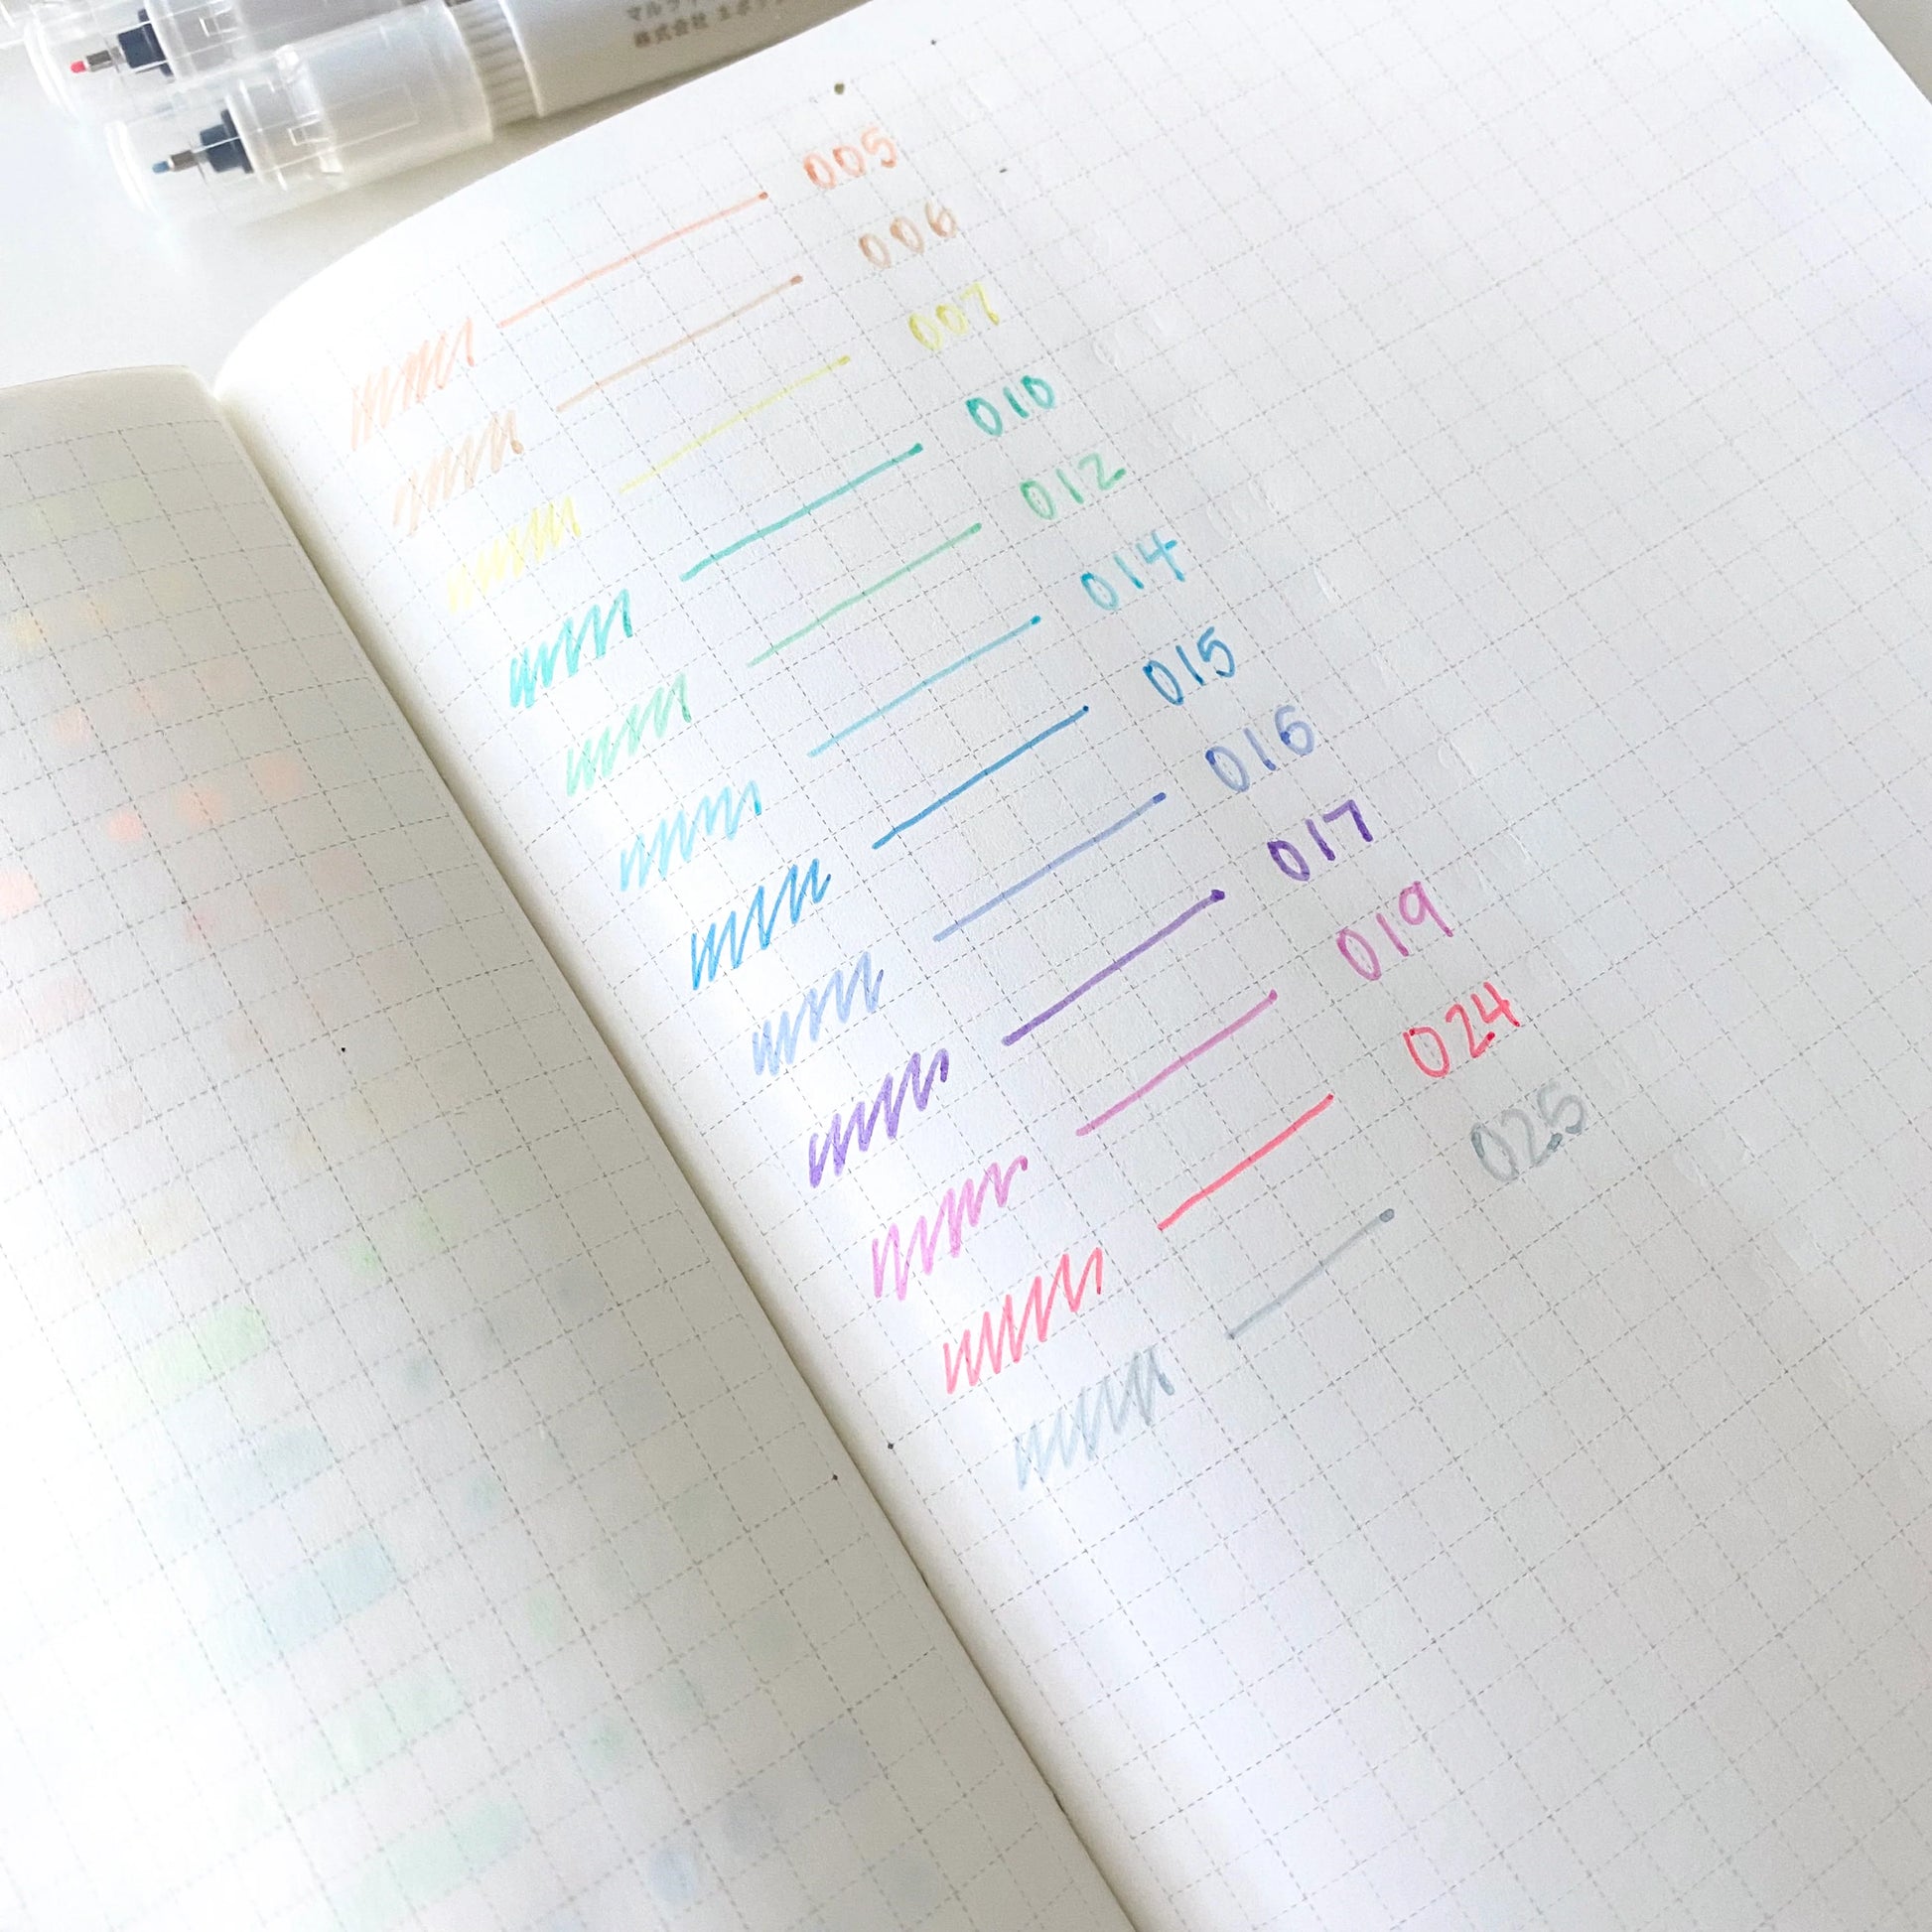 株式会社
005
006
007
010
012
014
015
016
017
019
024
025